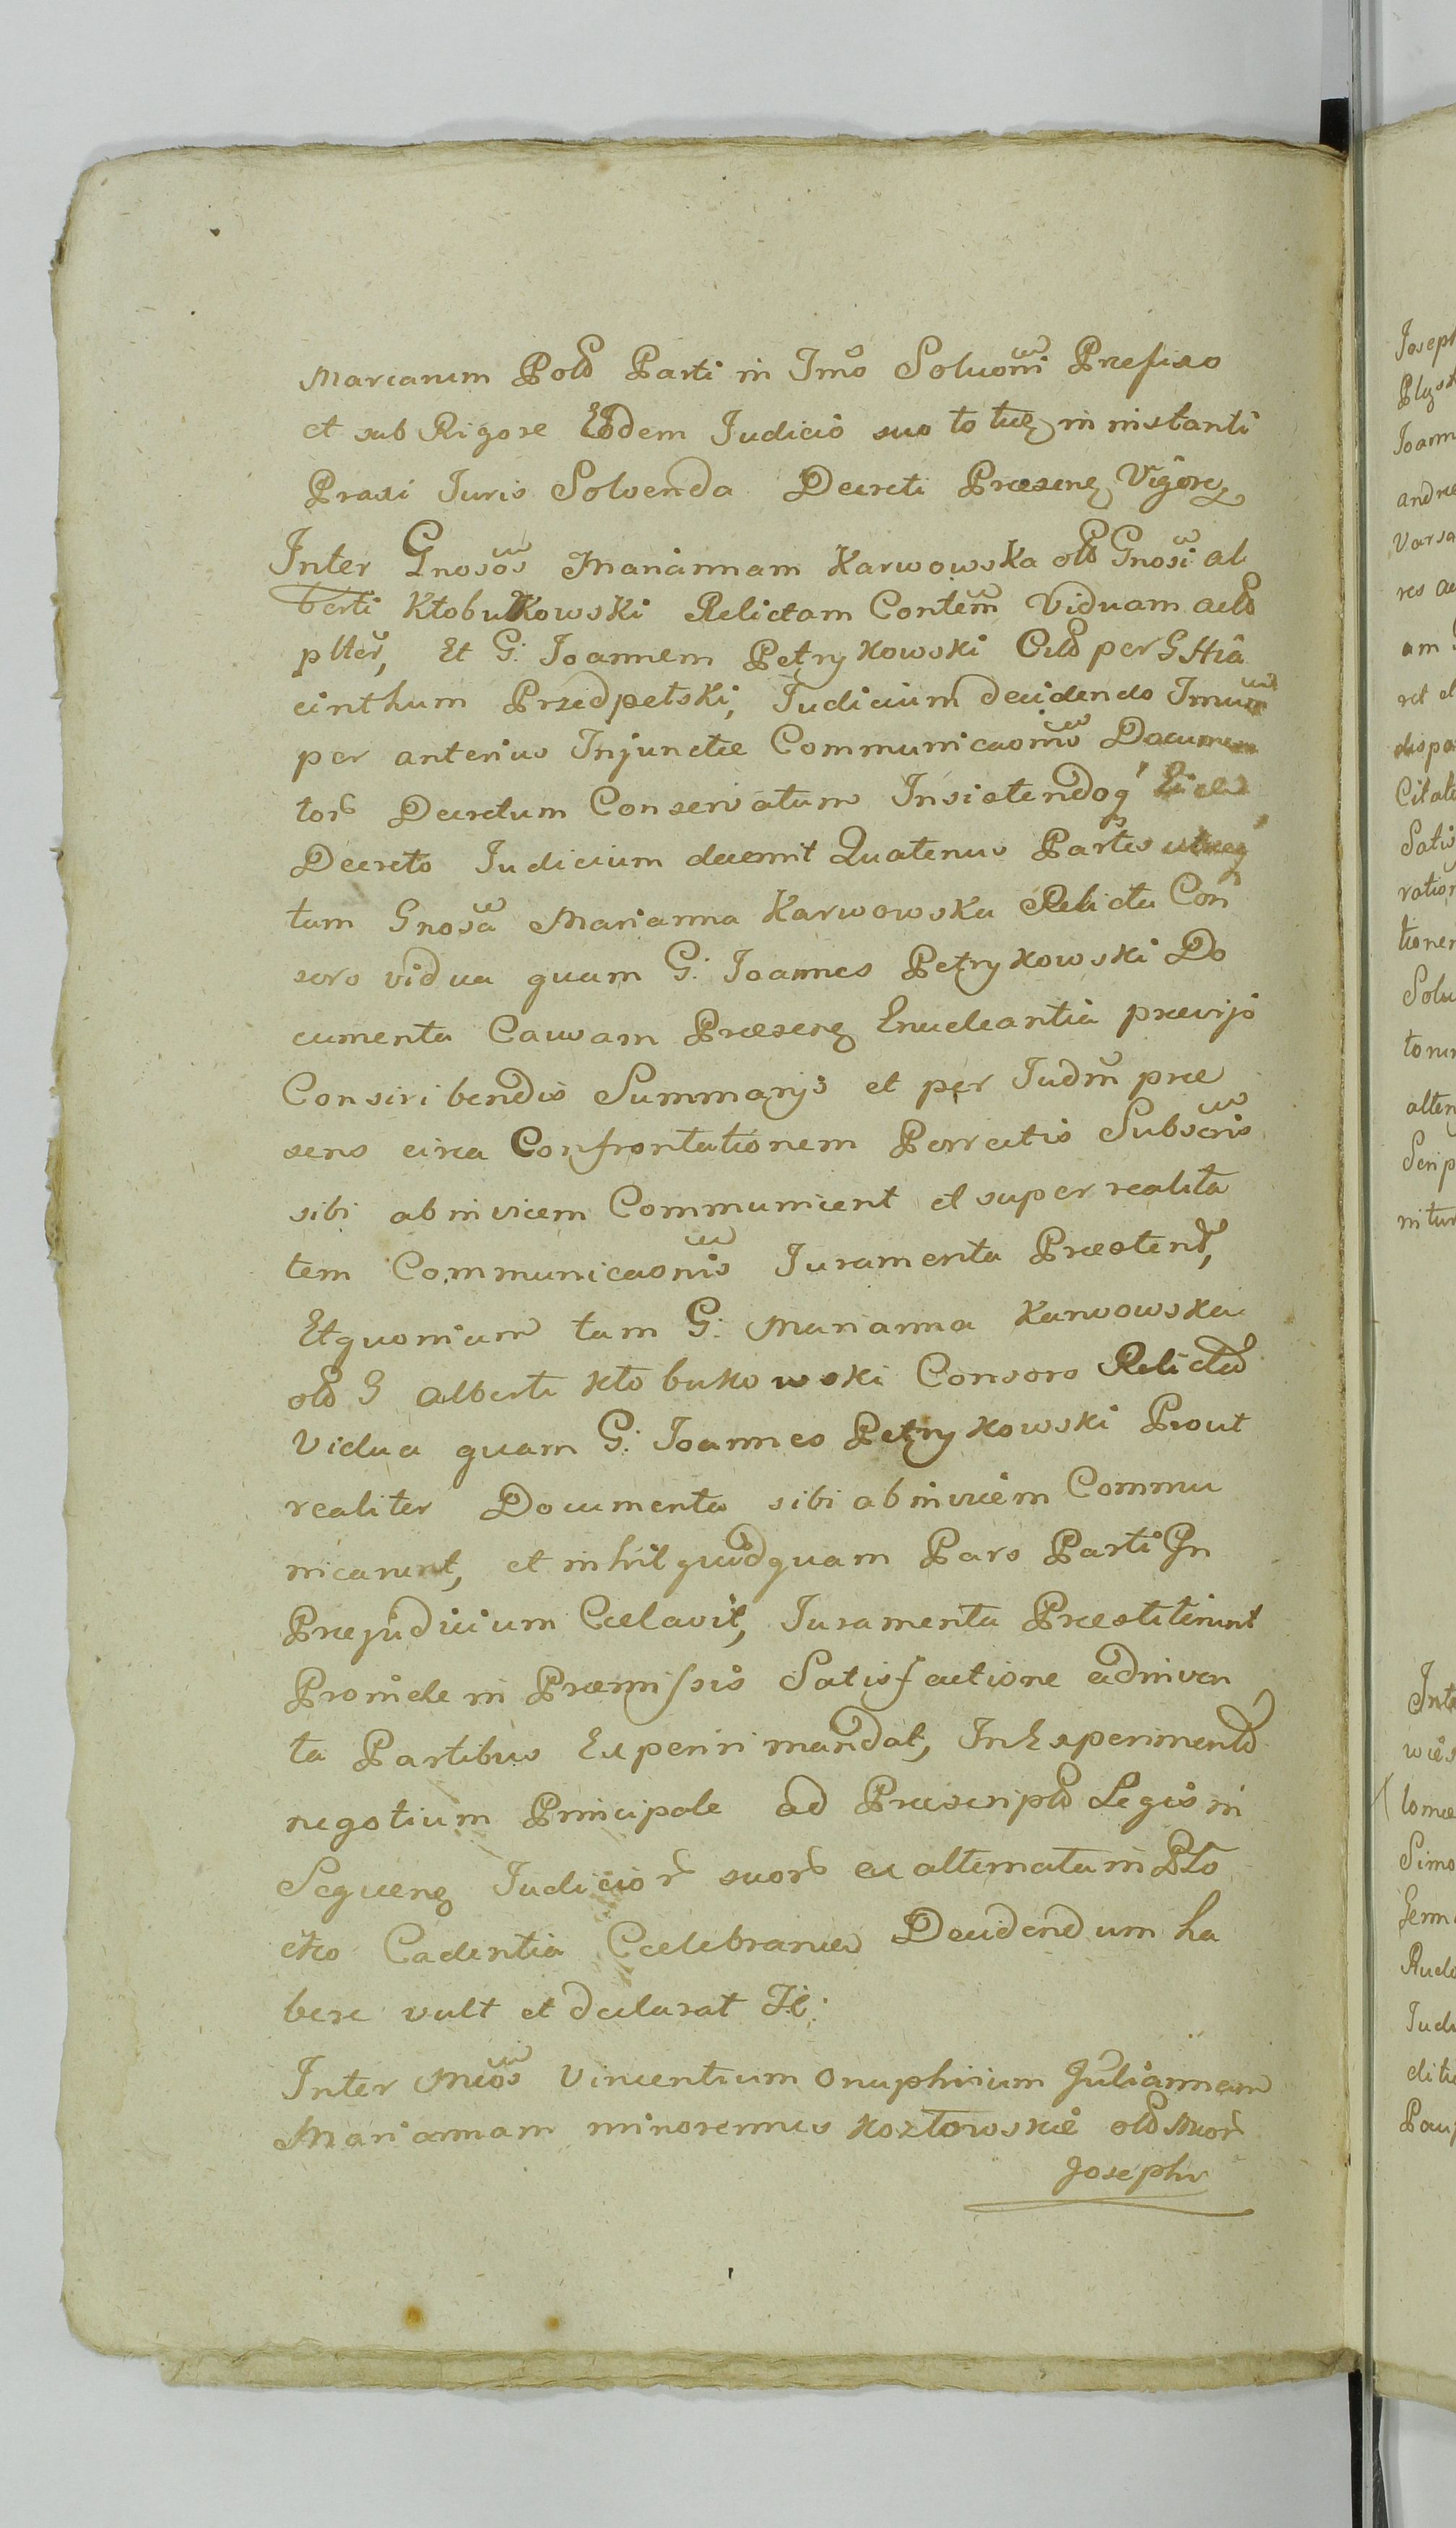 Marcarum Pold Parti in Imo Soluoni Prefixo
et sub Rigore Eodem Judicio suo to tieg in instanti
Praxi Juris Solvenda Decreti Præseng Vigore
Inter Gnosos Mariannam Karwowska old Gnosi al
berti Kłobukowski Relictam Contem Viduam aeld
plter, Et G: Joannem Petrykowski Cild per G Hia
cinthum Przedpełski, Judicium decidendo Imum
per anterius Injunctæ Communicaonis Documen
tor Decretum Conservatum Insistendoq
Decreto Judicium decernit Quatenus Partes utræq
tam Gnosa Marianna Karwowska Relicta Con
sors vidua quam G: Joannes Petrykowski Do
cumenta Causam Præseng Enucleantia prævijs
Conscribendis Summarijs et per Judm præ
sens circa Confrontationem Porrectis Subscris
sibi abinvicem Communicent et super realita
tem Communicaonis Juramenta Præstent,
Etquoniam tam G: Marianna Karwowska
old G Alberti Kłobukowski Consors Relicta
Vidua quam G: Joannes Petrykowski Prout
realiter Documenta sibi abinvicem Commu
nicarunt, et nihil quidquam Pars Parti In
Præjudicium Cælavit, Juramenta Præstiterunt
Proinde in Præmissis Satisfactione adinven
ta Partibus Experiri mandat, In Experimento
negotium Principale ad Præscriptd Legis in
Sequeng Judicior suor ex alternata in Pło
cko Cadentia Cælebrania Decidendum ha
bere vult et declarat It:
Inter Mcos Vincentium Onuphrium Juliannam
Mariannam minorennes Kozłowskie old Mcor
Josephi
Joseph
Joann
andre
Varsa
res ac
am
ret
dispo
Citat
Satis
ration
tionem
Solu
alter
Scrip
nitur
Int
wies
Simo
Germ
Judi